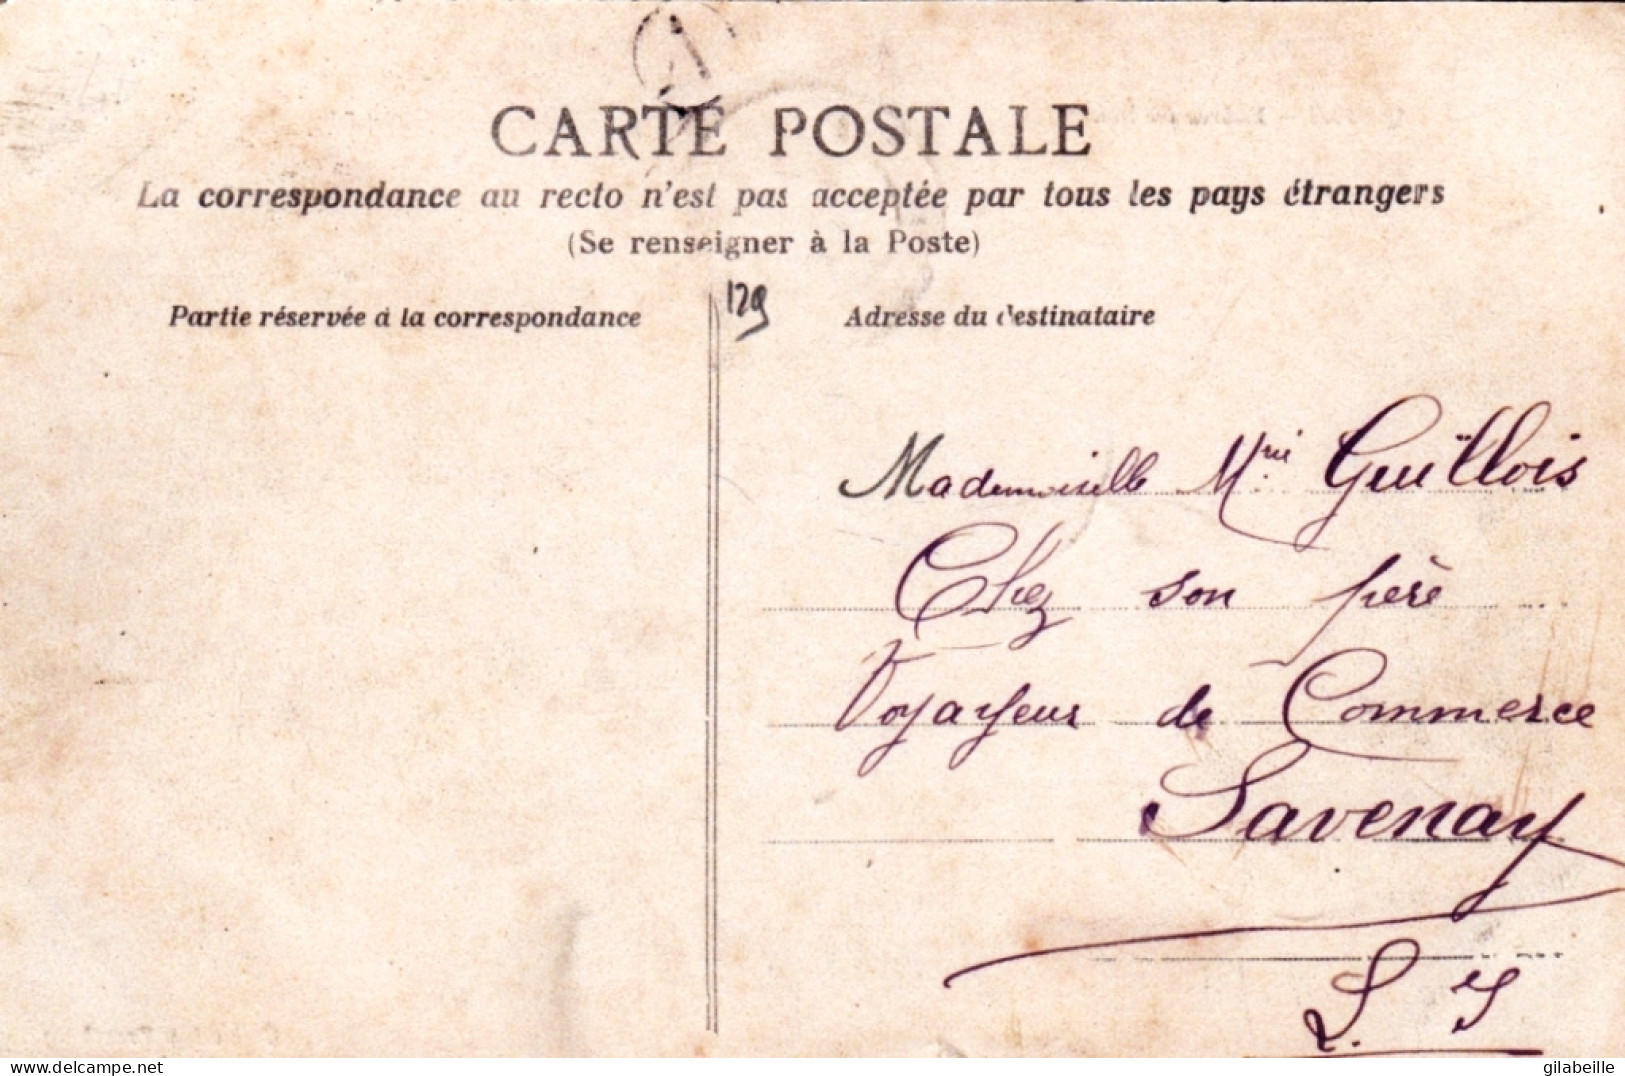 CARTE POSTALE
La correspondance au recto n'est pas acceptée par tous les pays étrangers
(Se renseigner à la Poste)
Partie réservée à la correspondance
129
Adresse du destinataire
Mademoiselle Mrie Guillois
Chez son père
Voyageur de Commerce
Savenay
L. I
delcampe.net
gilabeille